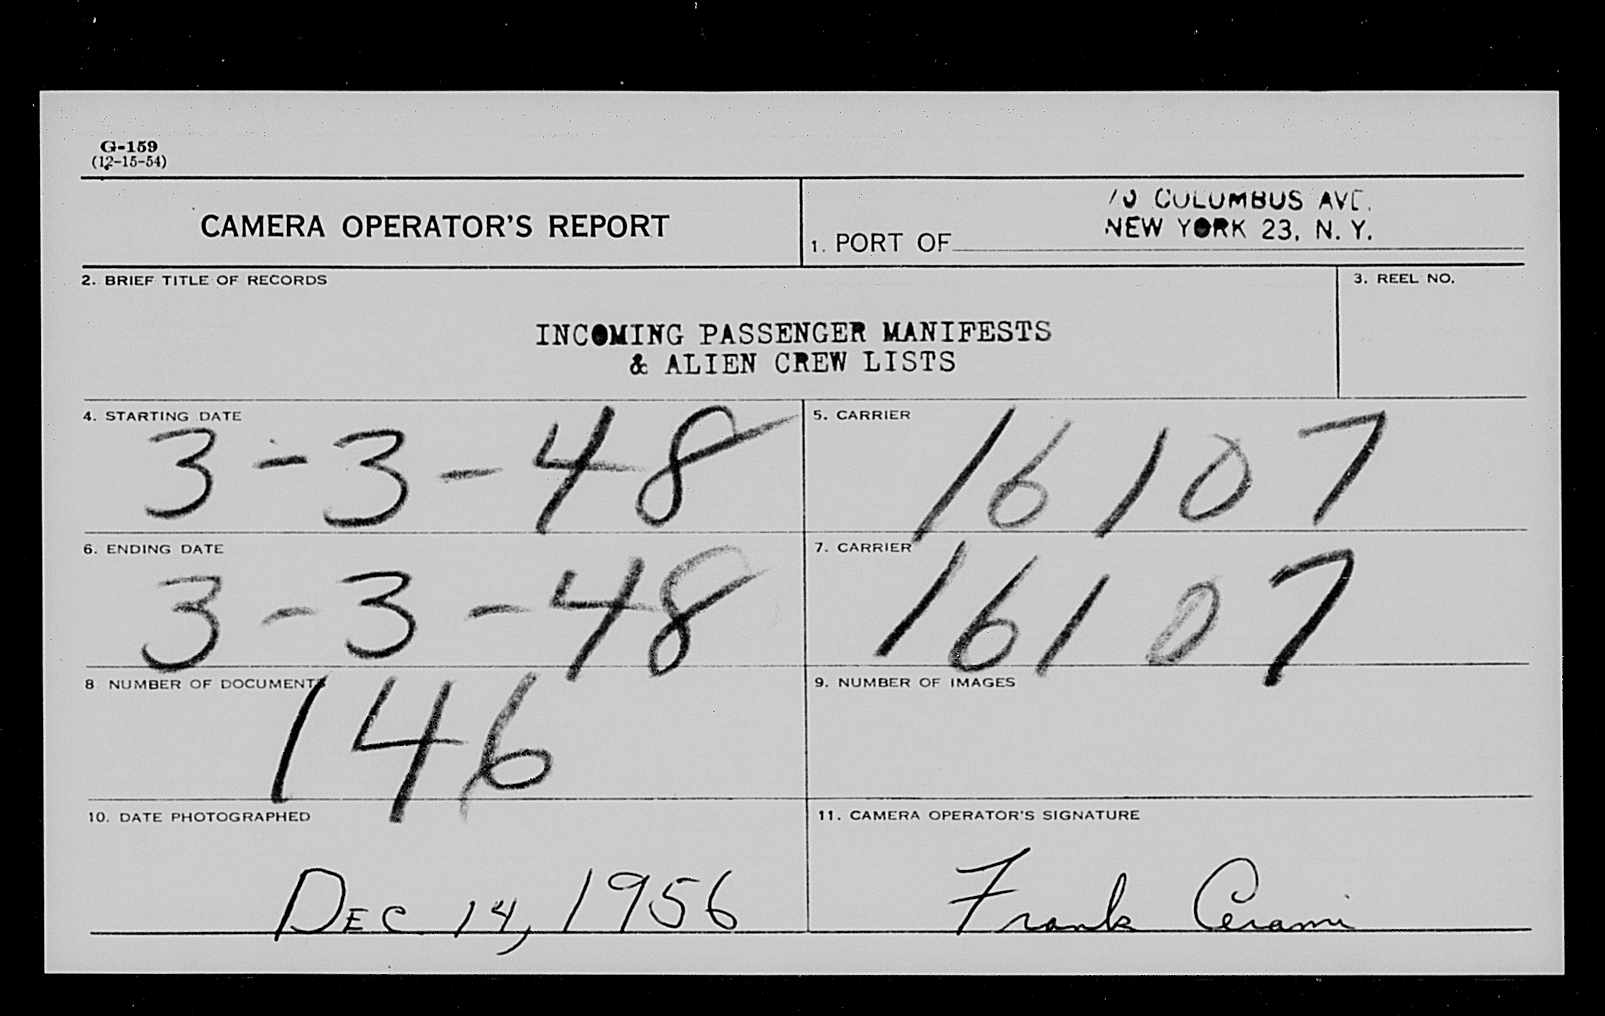 G-159
(12-15-54)
CAMERA OPERATOR'S REPORT
70 COLUMBUS AVE.
1. PORT OF NEW YORK 23, N. Y.
2. BRIEF TITLE OF RECORDS
3. REEL NO.
INCOMING PASSENGER MANIFESTS
& ALIEN CREW LISTS
4. STARTING DATE
3-3-48
5. CARRIER
16107
6. ENDING DATE
3-3-48
7. CARRIER
16107
8 NUMBER OF DOCUMENTS
146
9. NUMBER OF IMAGES
10. DATE PHOTOGRAPHED
DEC 14, 1956
11. CAMERA OPERATOR'S SIGNATURE
Frank Cerami